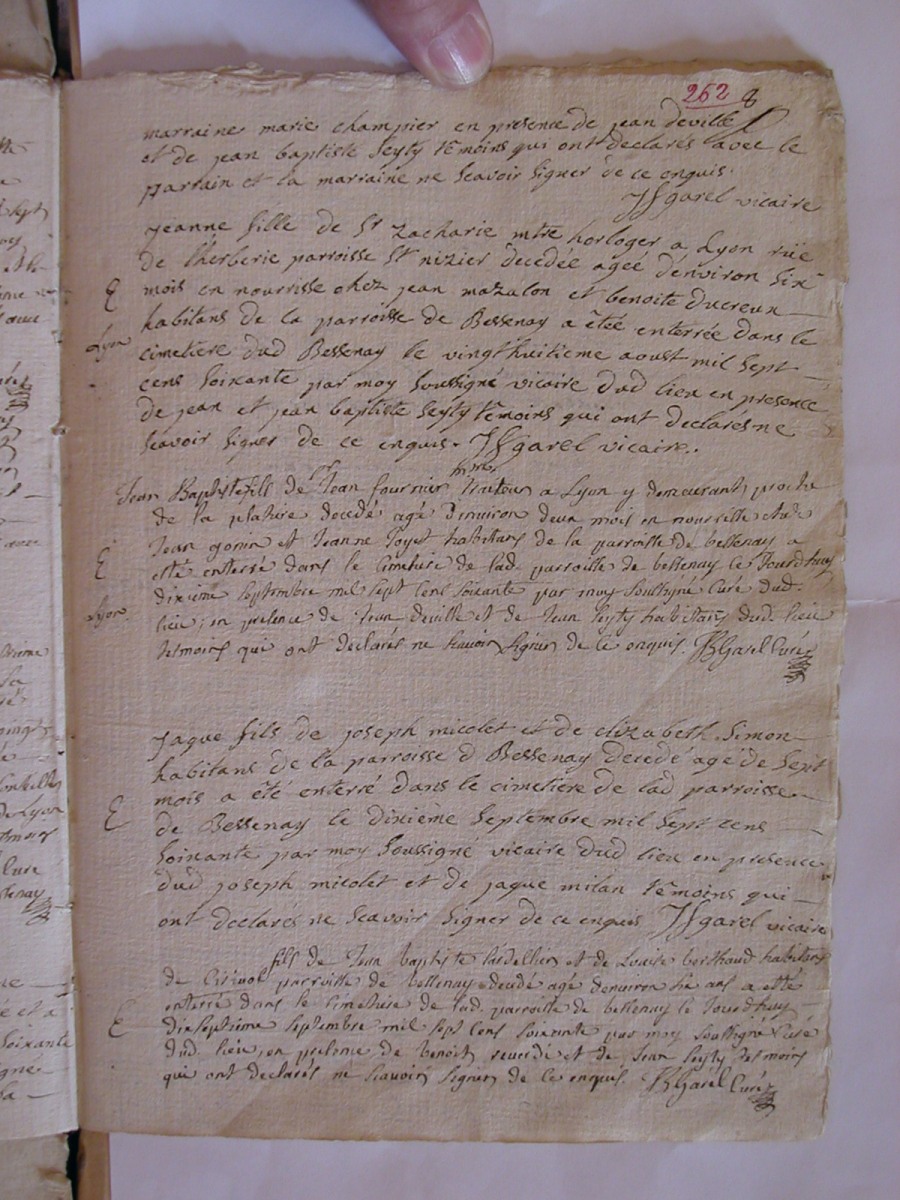 262 8
marraine marie champier en presence de jean deville
et de jean baptiste seyty témoins qui ont déclarés avec le
parrain et la marraine ne scavoir signer de ce enquis.
JSgarel vicaire
jeanne fille de Sr zacharie mtre horloger a Lyon rüe
de lherberie parroisse St nizier decedée ageé d'environ six
mois en nourrisse chez jean mazalon et benoite ducreux
habitans de la parroisse de Bessenay a êtée enterrée dans le
cimetiere dud Bessenay le vingthuitieme aoust mil sept
cens soixante par moy soussigné vicaire dud lieu en presence
de jean et jean baptiste seyty témoins qui ont declarés ne
scavoir signer de ce enquis. JSgarel vicaire.
E
Lyon
Jean Baptiste fils de Sr Jean fournier traiteur a Lyon y demeurant proche
de la platiere decedé agé d'environ deux mois en nourrisse chés
Jean gonin et Jeanne Joyet habitans de la parroisse de bessenay a
esté enterré dans le cimetiere de lad. parroisse de bessenay ce Jourdhuy
dixieme septembre mil sept cens soixante par moy soussigné Curé dud.
lieu, en presence de Jean deville et de Jean Seyty habitans dud. lieu
tesmoins qui ont declarés ne scavoir signer de ce enquis. JBGarel Curé
E
Lyon
jaque fils de joseph micolet et de elizabeth Simon
habitans de la parroisse d Bessenay decedé agé de sept
mois a été enterré dans le cimetiere de lad parroisse
de Bessenay le dixième septembre mil sept cens
soixante par moy soussigné vicaire dud lieu en presence
dud joseph micolet et de jaque milan témoins qui
ont declarés ne scavoir signer de ce enquis JSgarel vicaire
E
fils de Jean baptiste lardellier et de Louise berthaud habitans
de parroisse de bessenay decedé agé denviron six ans a esté
enterré dans le cimetiere de lad. parroisse de bessenay le Jourdhuy
dixseptieme septembre mil sept cens soixante par moy soussigné Curé
dud. lieu, en presence de benoit et de Jean Seyty tesmoins
qui ont declarés ne scavoir signer de ce enquis. JBGarel Curé
E